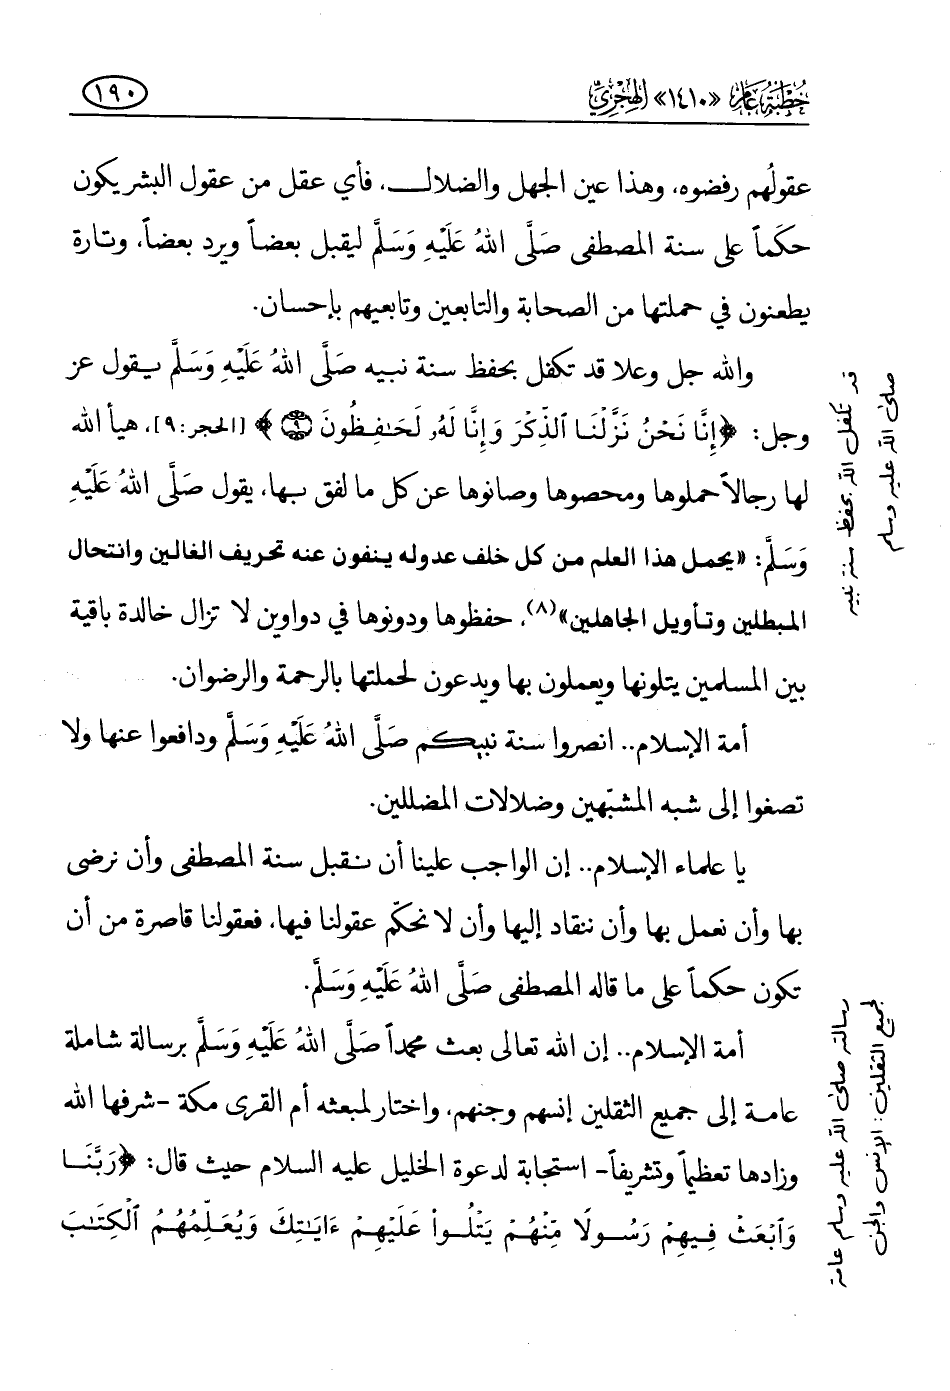 خطبة عام «١٤١٠» الهجري
١٩٠
عقولُهم رفضوه، وهذا عين الجهل والضلال، فأي عقل من عقول البشر يكون
حكَماً على سنة المصطفى صَلَّى اللهُ عَلَيْهِ وَسَلَّم ليقبل بعضاً ويرد بعضاً، وتارة
يطعنون في حملتها من الصحابة والتابعين وتابعيهم بإحسان.
والله جل وعلا قد تكفل بحفظ سنة نبيه صَلَّى اللهُ عَلَيْهِ وَسَلَّم يقول عز
وجل: ﴿إِنَّا نَحْنُ نَزَّلْنَا ٱلذِّكْرَ وَإِنَّا لَهُۥ لَحَٰفِظُونَ ۝٩﴾ [الحجر:٩]، هيأ الله
لها رجالاً حملوها ومحصوها وصانوها عن كل ما لفق بها، يقول صَلَّى اللهُ عَلَيْهِ
وَسَلَّم: «يحمل هذا العلم من كل خلف عدوله ينفون عنه تحريف الغالين وانتحال
المبطلين وتأويل الجاهلين»(٨)، حفظوها ودونوها في دواوين لا تزال خالدة باقية
بين المسلمين يتلونها ويعملون بها ويدعون لحملتها بالرحمة والرضوان.
أمة الإسلام.. انصروا سنة نبيكم صَلَّى اللهُ عَلَيْهِ وَسَلَّم ودافعوا عنها ولا
تصغوا إلى شبه المشبّهين وضلالات المضللين.
يا علماء الإسلام.. إن الواجب علينا أن نقبل سنة المصطفى وأن نرضى
بها وأن نعمل بها وأن ننقاد إليها وأن لا نحكّم عقولنا فيها، فعقولنا قاصرة من أن
تكون حكماً على ما قاله المصطفى صَلَّى اللهُ عَلَيْهِ وَسَلَّم.
أمة الإسلام.. إن الله تعالى بعث محمداً صَلَّى اللهُ عَلَيْهِ وَسَلَّم برسالة شاملة
عامة إلى جميع الثقلين إنسهم وجنهم، واختار لمبعثه أم القرى مكة -شرفها الله
وزادها تعظيماً وتشريفاً- استجابة لدعوة الخليل عليه السلام حيث قال: ﴿رَبَّنَا
وَٱبْعَثْ فِيهِمْ رَسُولًا مِّنْهُمْ يَتْلُوا۟ عَلَيْهِمْ ءَايَٰتِكَ وَيُعَلِّمُهُمُ ٱلْكِتَٰبَ
قد تكفل الله بحفظ سنة نبيه
صلى الله عليه وسلم
رسالته صلى الله عليه وسلم عامة
لجميع الثقلين: الإنس والجن